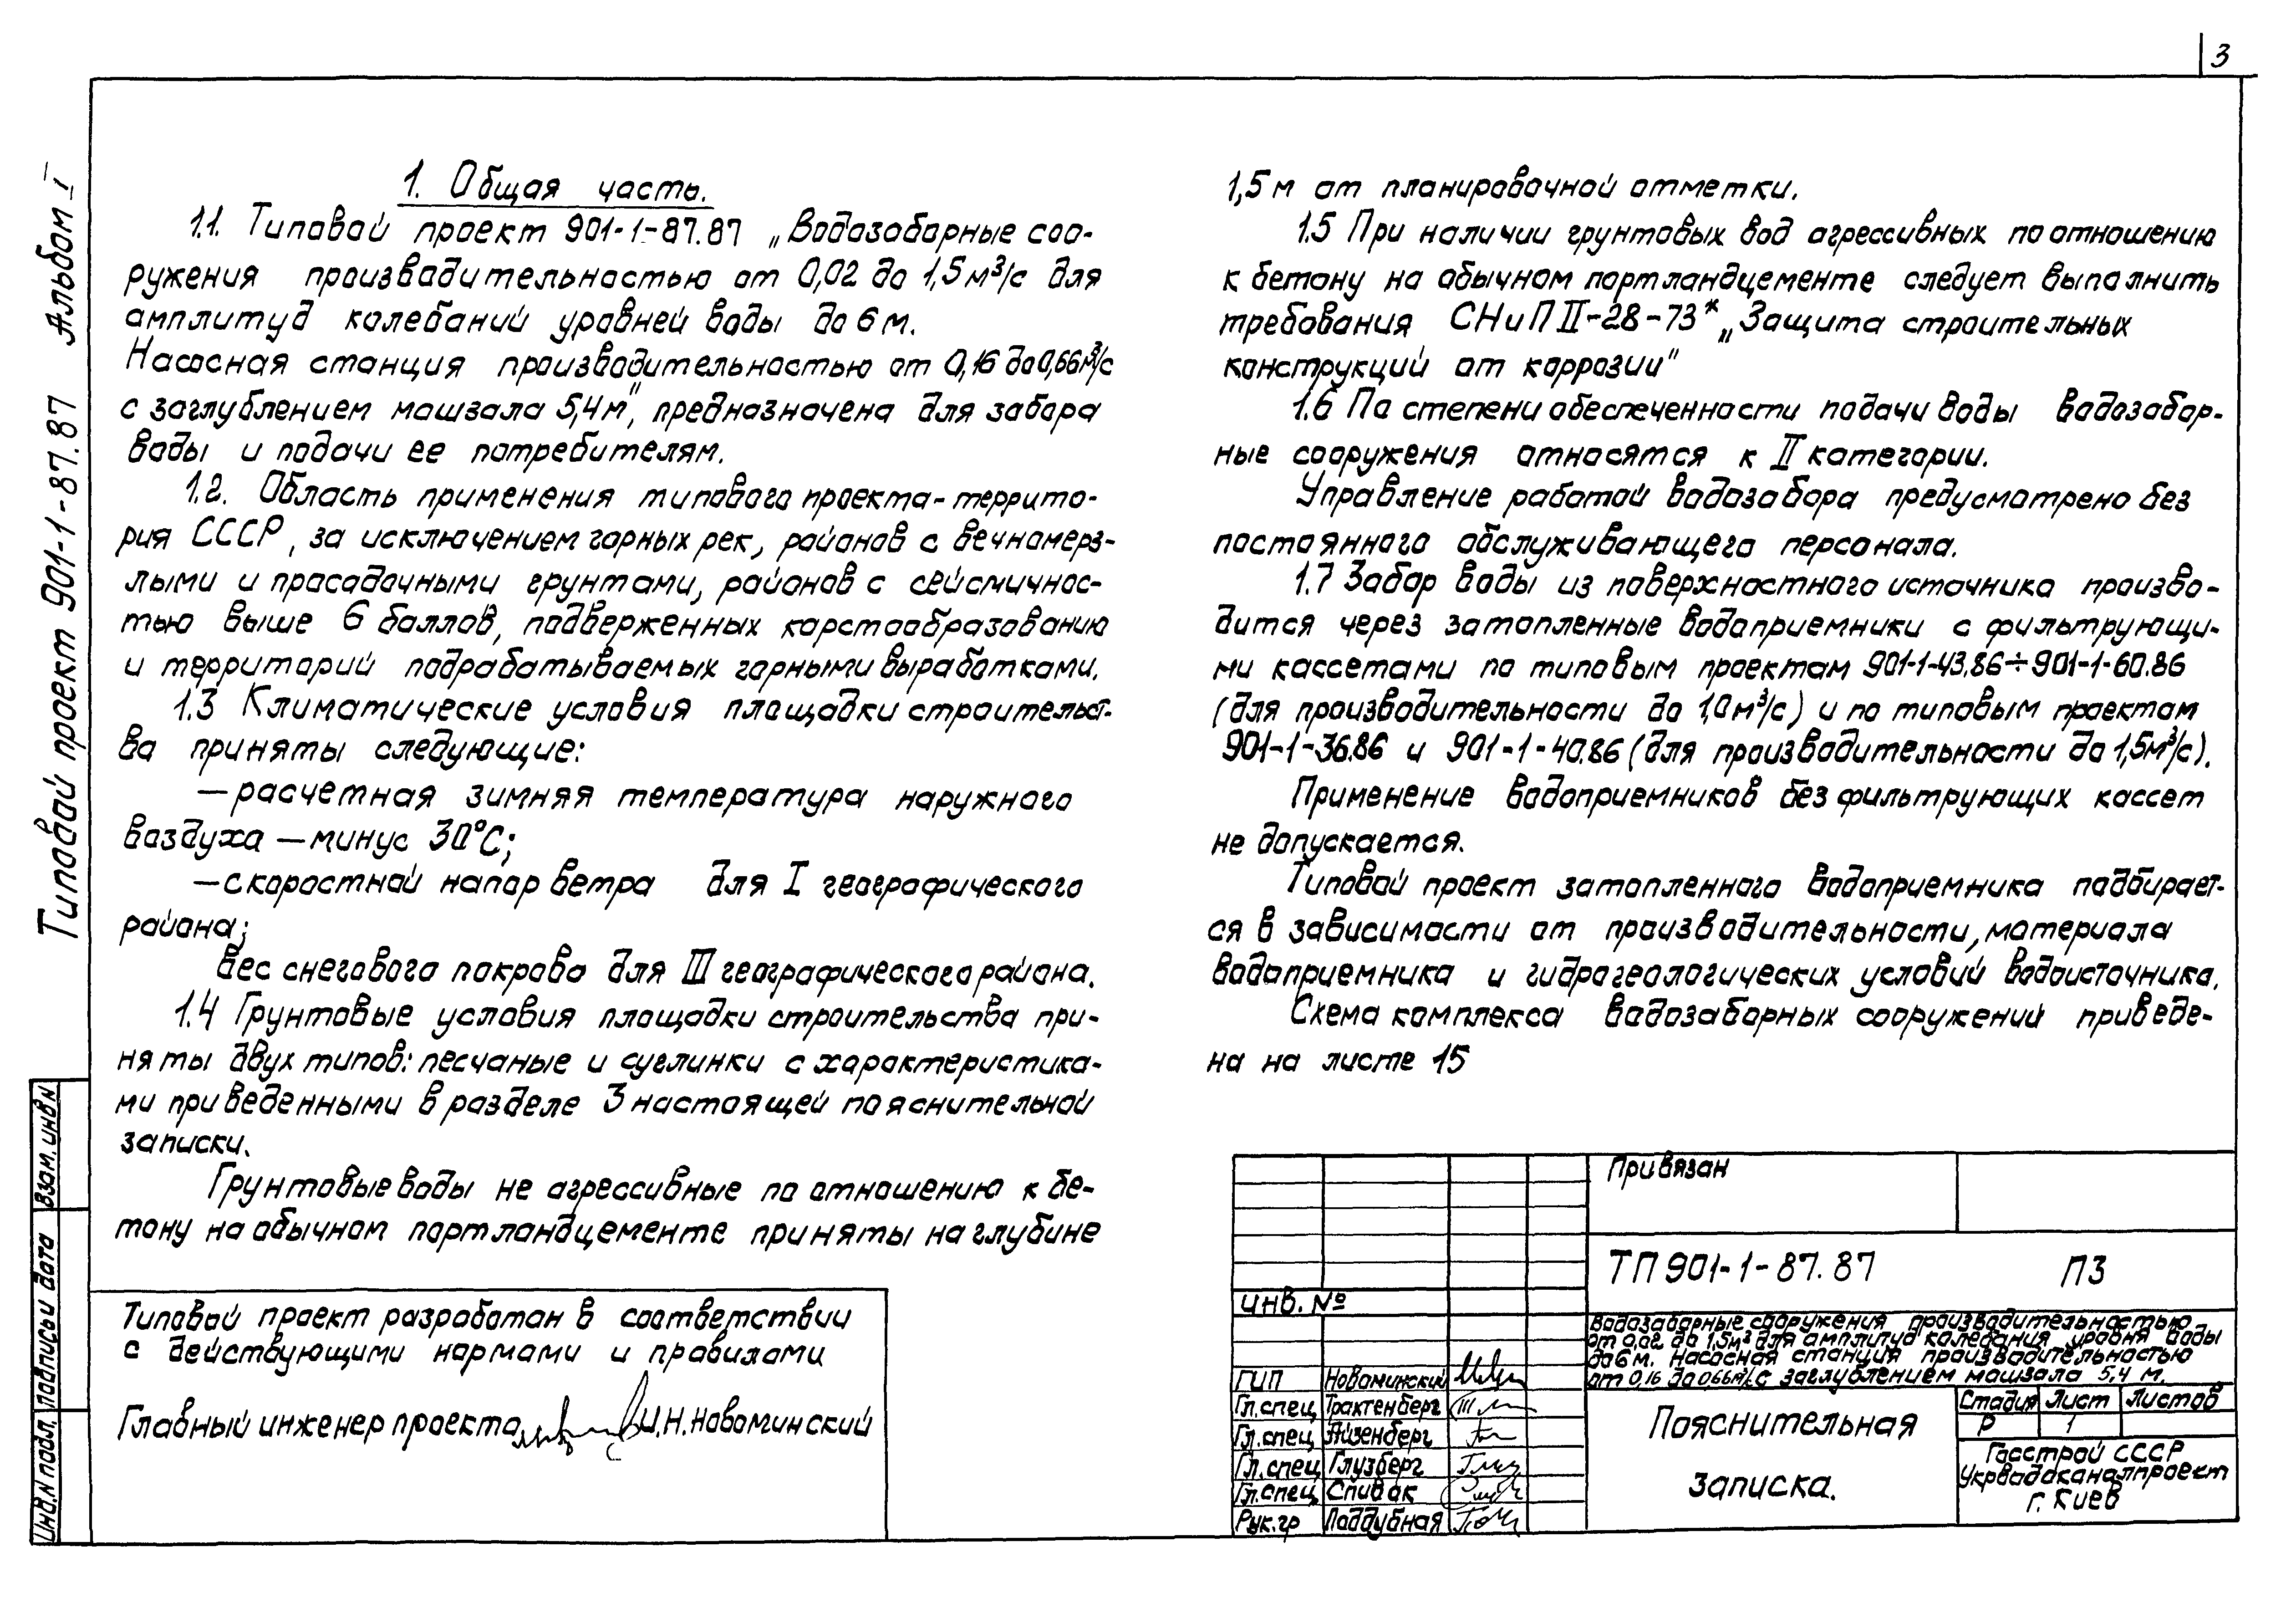 3
Типовой проект 901-1-87.87 Альбом I
1. Общая часть.
1.1. Типовой проект 901-1-87.87 „Водозаборные соо-
ружения производительностью от 0,02 до 1,5 м³/с для
амплитуд колебаний уровней воды до 6 м.
Насосная станция производительностью от 0,16 до 0,66 м³/с
с заглублением машзала 5,4 м", предназначена для забора
воды и подачи ее потребителям.
1.2. Область применения типового проекта - террито-
рия СССР, за исключением горных рек, районов с вечномерз-
лыми и просадочными грунтами, районов с сейсмичнос-
тью выше 6 баллов, подверженных карстообразованию
и территорий подрабатываемых горными выработками.
1.3 Климатические условия площадки строительст-
ва приняты следующие:
— расчетная зимняя температура наружного
воздуха — минус 30°С;
— скоростной напор ветра для I географического
района;
вес снегового покрова для III географического района.
1.4 Грунтовые условия площадки строительства при-
няты двух типов: песчаные и суглинки с характеристика-
ми приведенными в разделе 3 настоящей пояснительной
записки.
Грунтовые воды не агрессивные по отношению к бе-
тону на обычном портландцементе приняты на глубине
1,5 м от планировочной отметки.
1.5 При наличии грунтовых вод агрессивных по отношению
к бетону на обычном портландцементе следует выполнить
требования СНиП II-28-73* „Защита строительных
конструкций от коррозии"
1.6 По степени обеспеченности подачи воды водозабор-
ные сооружения относятся к II категории.
Управление работой водозабора предусмотрено без
постоянного обслуживающего персонала.
1.7 Забор воды из поверхностного источника произво-
дится через затопленные водоприемники с фильтрующи-
ми кассетами по типовым проектам 901-1-43.86÷901-1-60.86
(для производительности до 1,0 м³/с) и по типовым проектам
901-1-36.86 и 901-1-40.86 (для производительности до 1,5 м³/с).
Применение водоприемников без фильтрующих кассет
не допускается.
Типовой проект затопленного водоприемника подбирает-
ся в зависимости от производительности, материала
водоприемника и гидрогеологических условий водоисточника.
Схема комплекса водозаборных сооружений приведе-
на на листе 15
Типовой проект разработан в соответствии
с действующими нормами и правилами
Главный инженер проекта И.Н. Новоминский
Инв.N подл. Подпись и дата Взам. инв.N
Привязан
Инв. №
ТП 901-1-87.87 ПЗ
Водозаборные сооружения производительностью
от 0,02 до 1,5м³ для амплитуд колебания уровня воды
до 6 м. Насосная станция производительностью
от 0,16 до 0,66м³/с с заглублением машзала 5,4 м.
ГИП Новоминский
Гл.спец Трактенберг
Гл.спец Айзенберг
Гл.спец Глузберг
Гл.спец Спивак
Рук.гр Поддубная
Пояснительная
записка.
Стадия Лист Листов
Р 1
Госстрой СССР
Укрводоканалпроект
г. Киев